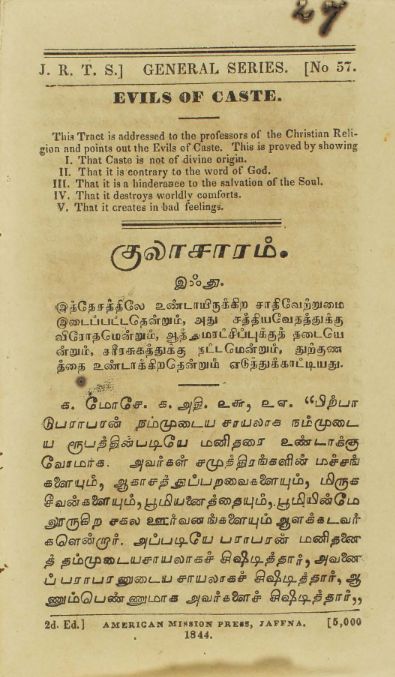 27
J. R. T. S.] GENERAL SERIES. [No 57.
EVILS OF CASTE.
This Tract is addressed to the professors of the Christian Reli-
gion and points out the Evils of Caste. This is proved by showing
I. That Caste is not of divine origin.
II. That it is contrary to the word of God.
III. That it is a hinderance to the salvation of the Soul.
IV. That it destroys worldly comforts.
V. That it creates in bad feelings.
குலாசாரம்.
இஃது.
இத்தேசத்திலே உண்டாயிருக்கிற சாதிவேற்றுமை
இடைப்பட்டதென்றும், அது சத்தியவேதத்துக்கு
விரோதமென்றும், ஆத்தமரட்சிப்புக்குத் தடையே
ன்றும், சரீரசுகத்துக்கு நட்டமென்றும், துற்குண
த்தை உண்டாக்கிறதென்றும் எடுத்துக்காட்டியது.
க. மோசே. க. அதி. உசு, உஎ. “பிற்பா
டுபராபரன் நம்முடைய சாயலாக நம்முடை
ய ரூபத்தின்படியே மனிதரை உண்டாக்கு
வோமாக. அவர்கள் சமுத்திரங்களின் மச்சங்
களையும், ஆகாசத்துப்பறவைகளையும், மிருக
சீவன்களையும், பூமியனைத்தையும், பூமியின்மே
லூருகிற சகல ஊர்வனங்களையும் ஆளக்கடவர்
களென்றார். அப்படியே பராபரன் மனிதனை
த் தம்முடையசாயலாகச் சிஷ்டித்தார், அவனை
ப் பராபரனுடைய சாயலாகச் சிஷ்டித்தார், ஆ
ணும்பெண்ணுமாக அவர்களைச் சிஷ்டித்தார்,,
2d. Ed.] AMERICAN MISSION PRESS, JAFFNA. [5,000
1844.